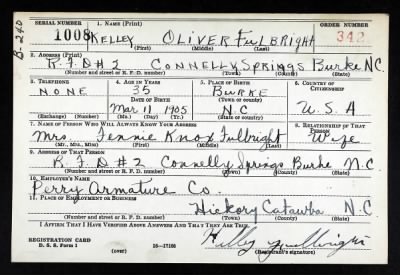 SERIAL NUMBER 1. NAME (Print) ORDER NUMBER
1008 KELLEY OLIVER FULBRIGHT 342
(First) (Middle) (Last)
B-240
2. ADDRESS (Print)
R.F.D #2 CONNELLY SPRINGS Burke N.C.
(Number and street or R. F. D. number) (Town) (County) (State)
3. TELEPHONE 4. AGE IN YEARS 5. PLACE OF BIRTH 6. COUNTRY OF CITIZENSHIP
NONE 35 BURKE
DATE OF BIRTH (Town or county)
Mar 11 1905 N.C U.S.A
(Exchange) (Number) (Mo.) (Day) (Yr.) (State or country)
7. NAME OF PERSON WHO WILL ALWAYS KNOW YOUR ADDRESS 8. RELATIONSHIP OF THAT PERSON
Mrs Fennie Knox Fulbright Wife
(Mr., Mrs., Miss) (First) (Middle) (Last)
9. ADDRESS OF THAT PERSON
R.F.D #2 Connelly Springs Burke N.C
(Number and street or R. F. D. number) (Town) (County) (State)
10. EMPLOYER'S NAME
Perry Armature Co.
11. PLACE OF EMPLOYMENT OR BUSINESS
Hickory Catawba N.C
(Number and street or R. F. D. number) (Town) (County) (State)
I AFFIRM THAT I HAVE VERIFIED ABOVE ANSWERS AND THAT THEY ARE TRUE.
Kelly Fulbright
REGISTRATION CARD
D. S. S. Form 1 16-17105 (Registrant's signature)